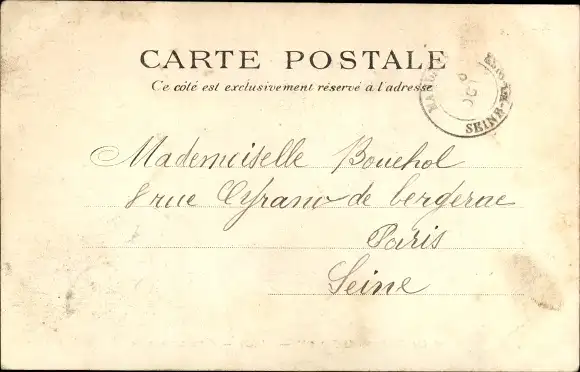 CARTE POSTALE
Ce côté est exclusivement réservé a l'adresse
SEINE-ET-OISE
Mademoiselle Bouchol
8 rue Cyrano de bergerac
Paris
Seine